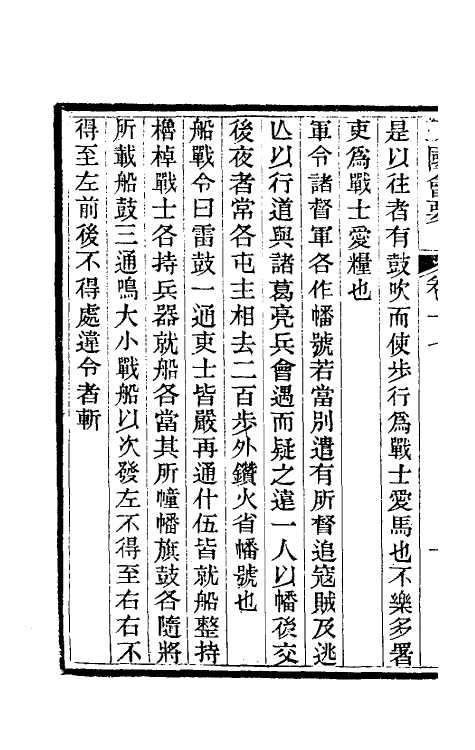 三國會要　卷十七
是以往者有鼓吹而使步行為戰士愛馬也不樂多署
吏為戰士愛糧也
軍令諸督軍各作幡號若當別遣有所督追寇賊及逃
亾以行道與諸葛亮兵會遇而疑之遠一人以幡後交
後夜者常各屯主相去二百步外鑽火省幡號也
船戰令曰雷鼓一通吏士皆嚴再通什伍皆就船整持
櫓棹戰士各持兵器就船各當其所幢幡旗鼓各隨將
所載船鼓三通鳴大小戰船以次發左不得至右右不
得至左前後不得處違令者斬